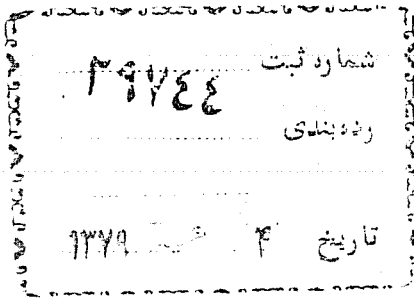 شماره ثبت ۳۹۷٤٤
رده‌بندی
تاریخ ۴ ۱۳۷۹